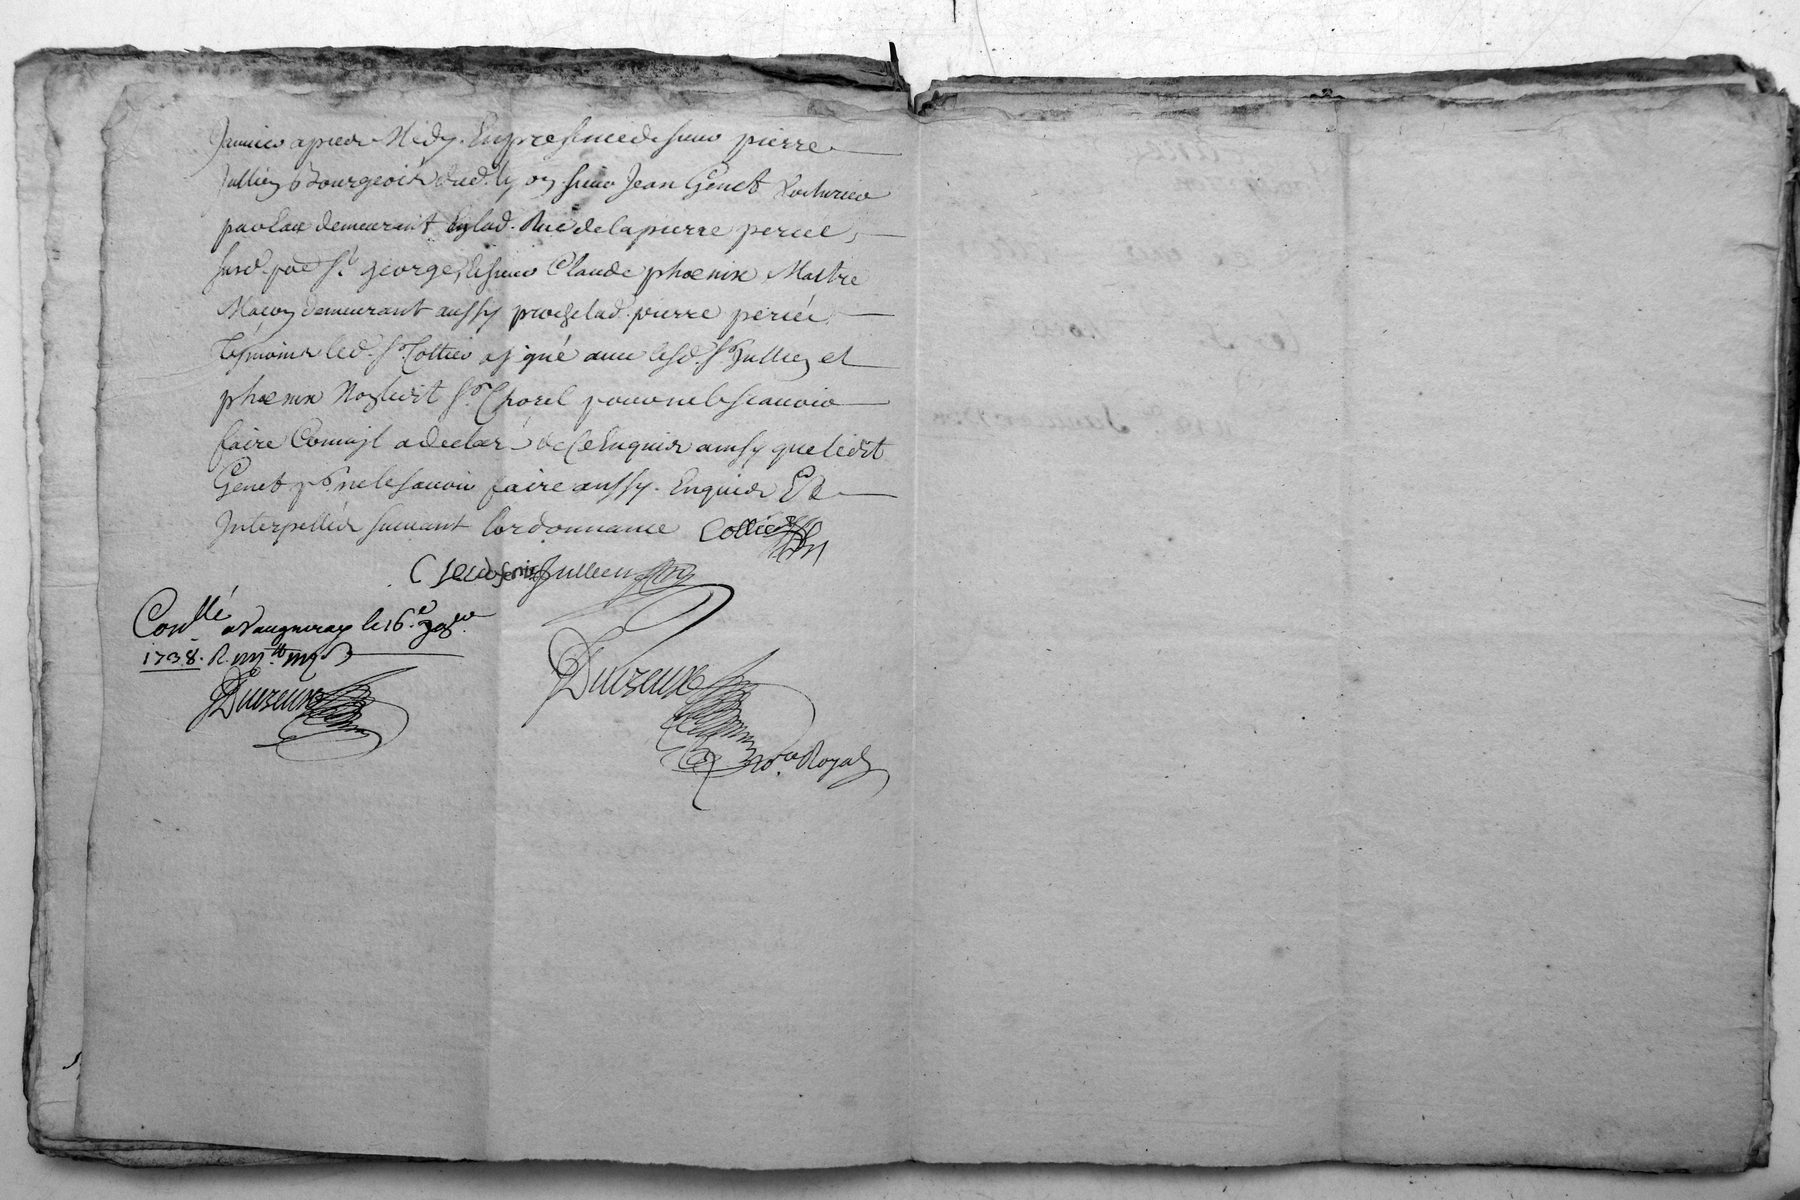 Janvier apres Midy. En presence de sieur pierre
Jullien Bourgeois dud. lyon sieur Jean Genet Voiturier
par Eau demeurant En lad. Rue de la pierre percée,
susd. pse St. george, & sieur Claude phœnix Maitre
Maçon demeurant aussy proche lad. pierre percée
témoins led. Sr. Collier a signé avec lesd. Srs Jullien et
phœnix Non ledit Sr. Chorel pour ne le scauoir
faire Comm'il a declaré de ce Enquis ainsy que ledit
Genet pr. ne le sauoir faire aussy. Enquis Et
Interpellés suivant l'ordonnance Collier
Claude fenix Jullien
Conllé a Vaugneray le 16e
1738. R.
Duvzeux
Duvzeux
No.re Royal